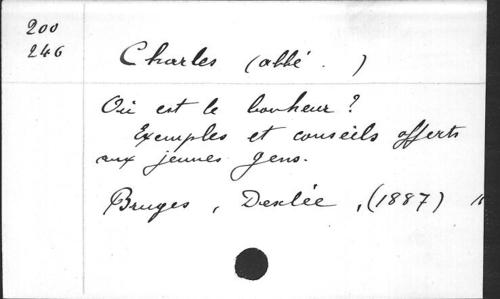 200
246
Charles (abbé. )
Où est le bonheur?
Exemples et conseils offerts
aux jeunes gens.
Bruges, Desclée, (1887)